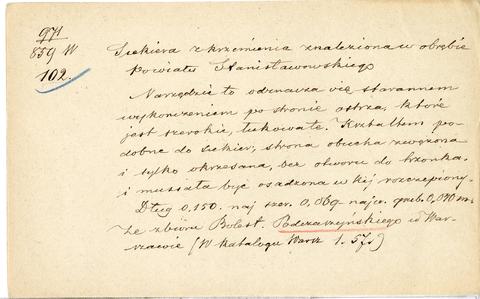 971
859 W
102.
Siekiera z krzemienia znaleziona w obrębie
Powiatu Stanisławowskiego
Narzędzie to odznacza się starannem
wykończeniem po stronie ostrza, które
jest szerokie, łukowate. Kształtem po-
dobne do siekier; strona obucha zwężona
i tylko okrzesana, bez otworu do trzonka,
i musiała być osadzona w kij rozczepiony.
Dług 0,150. naj szer. 0,069 najw. grub. 0,040 m.
Ze zbioru Bolest. Podczaszyńskiego w War-
szawie (W katalogu Warsz 1. 57)